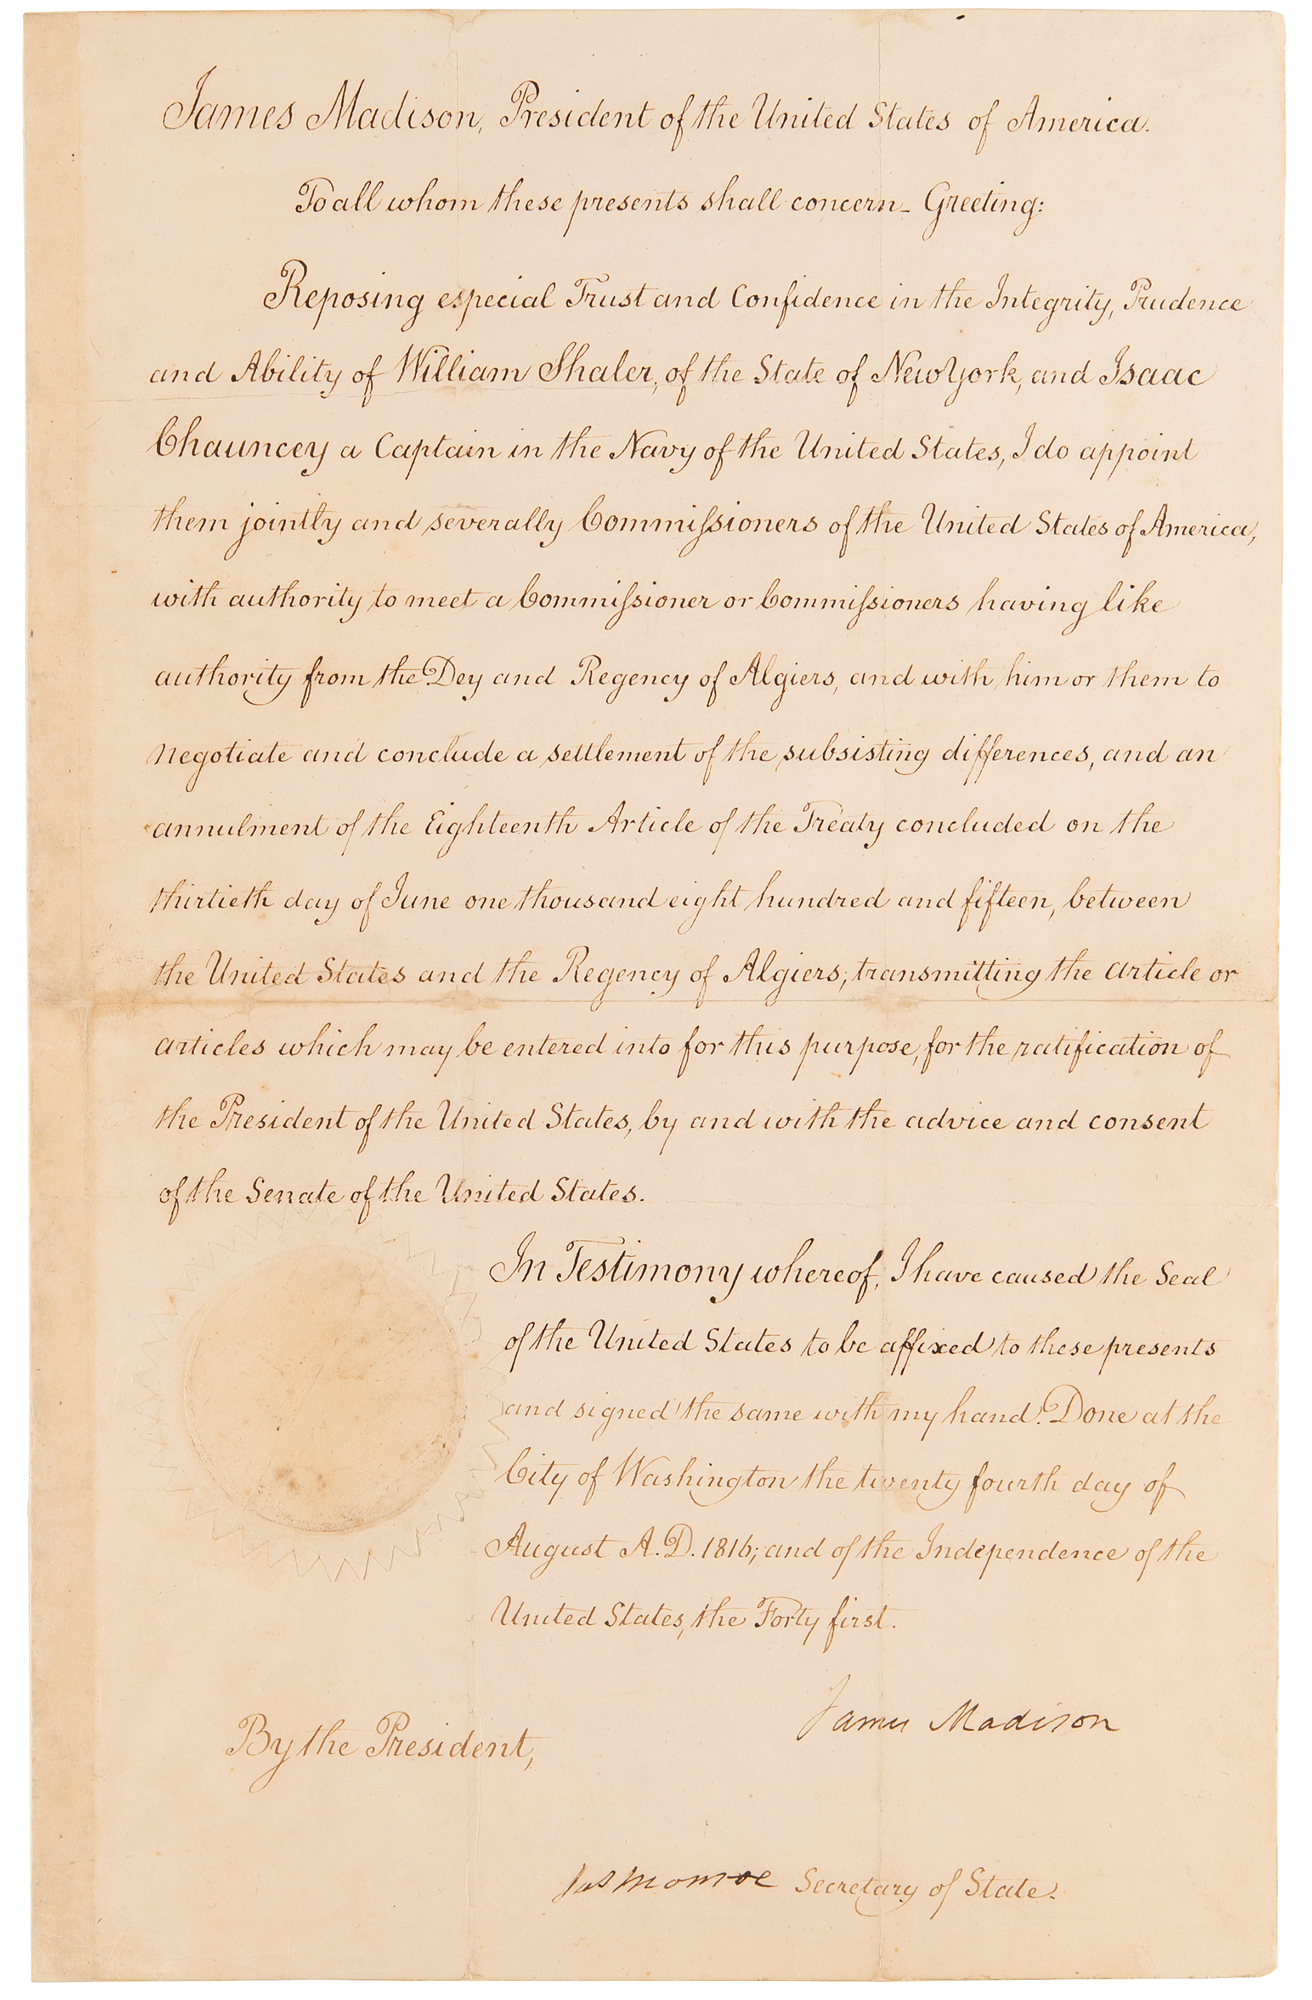 James Madison, President of the United States of America.
To all whom these presents shall concern_ Greeting:
Reposing especial Trust and Confidence in the Integrity, Prudence
and Ability of William Shaler, of the State of New York, and Isaac
Chauncey a Captain in the Navy of the United States, I do appoint
them jointly and severally Commiſsioners of the United States of America,
with authority to meet a Commiſsioner or Commiſsioners having like
authority from the Dey and Regency of Algiers, and with him or them to
negotiate and conclude a settlement of the subsisting differences, and an
annulment of the Eighteenth Article of the Treaty concluded on the
thirtieth day of June one thousand eight hundred and fifteen, between
the United States and the Regency of Algiers; transmitting the article or
articles which may be entered into for this purpose, for the ratification of
the President of the United States, by and with the advice and consent
of the Senate of the United States.
In Testimony whereof, I have caused the Seal
of the United States to be affixed to these presents
and signed the same with my hand. Done at the
City of Washington the twenty fourth day of
August A.D. 1816; and of the Independence of the
United States, the Forty first.
James Madison
By the President,
Jas Monroe Secretary of State.